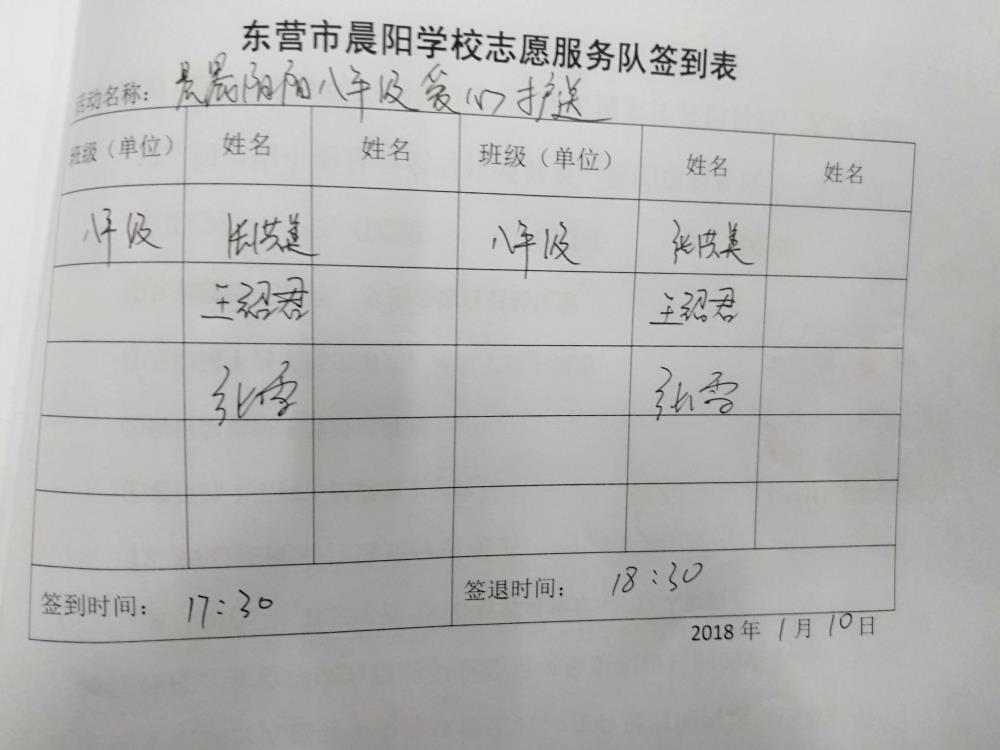 东营市晨阳学校志愿服务队签到表
活动名称：晨晨阳阳八年级爱心护送
班级（单位） 姓名 姓名 班级（单位） 姓名 姓名
八年级 张洪美 八年级 张洪美
王绍君 王绍君
张雪 张雪
签到时间：17:30 签退时间：18:30
2018年1月10日